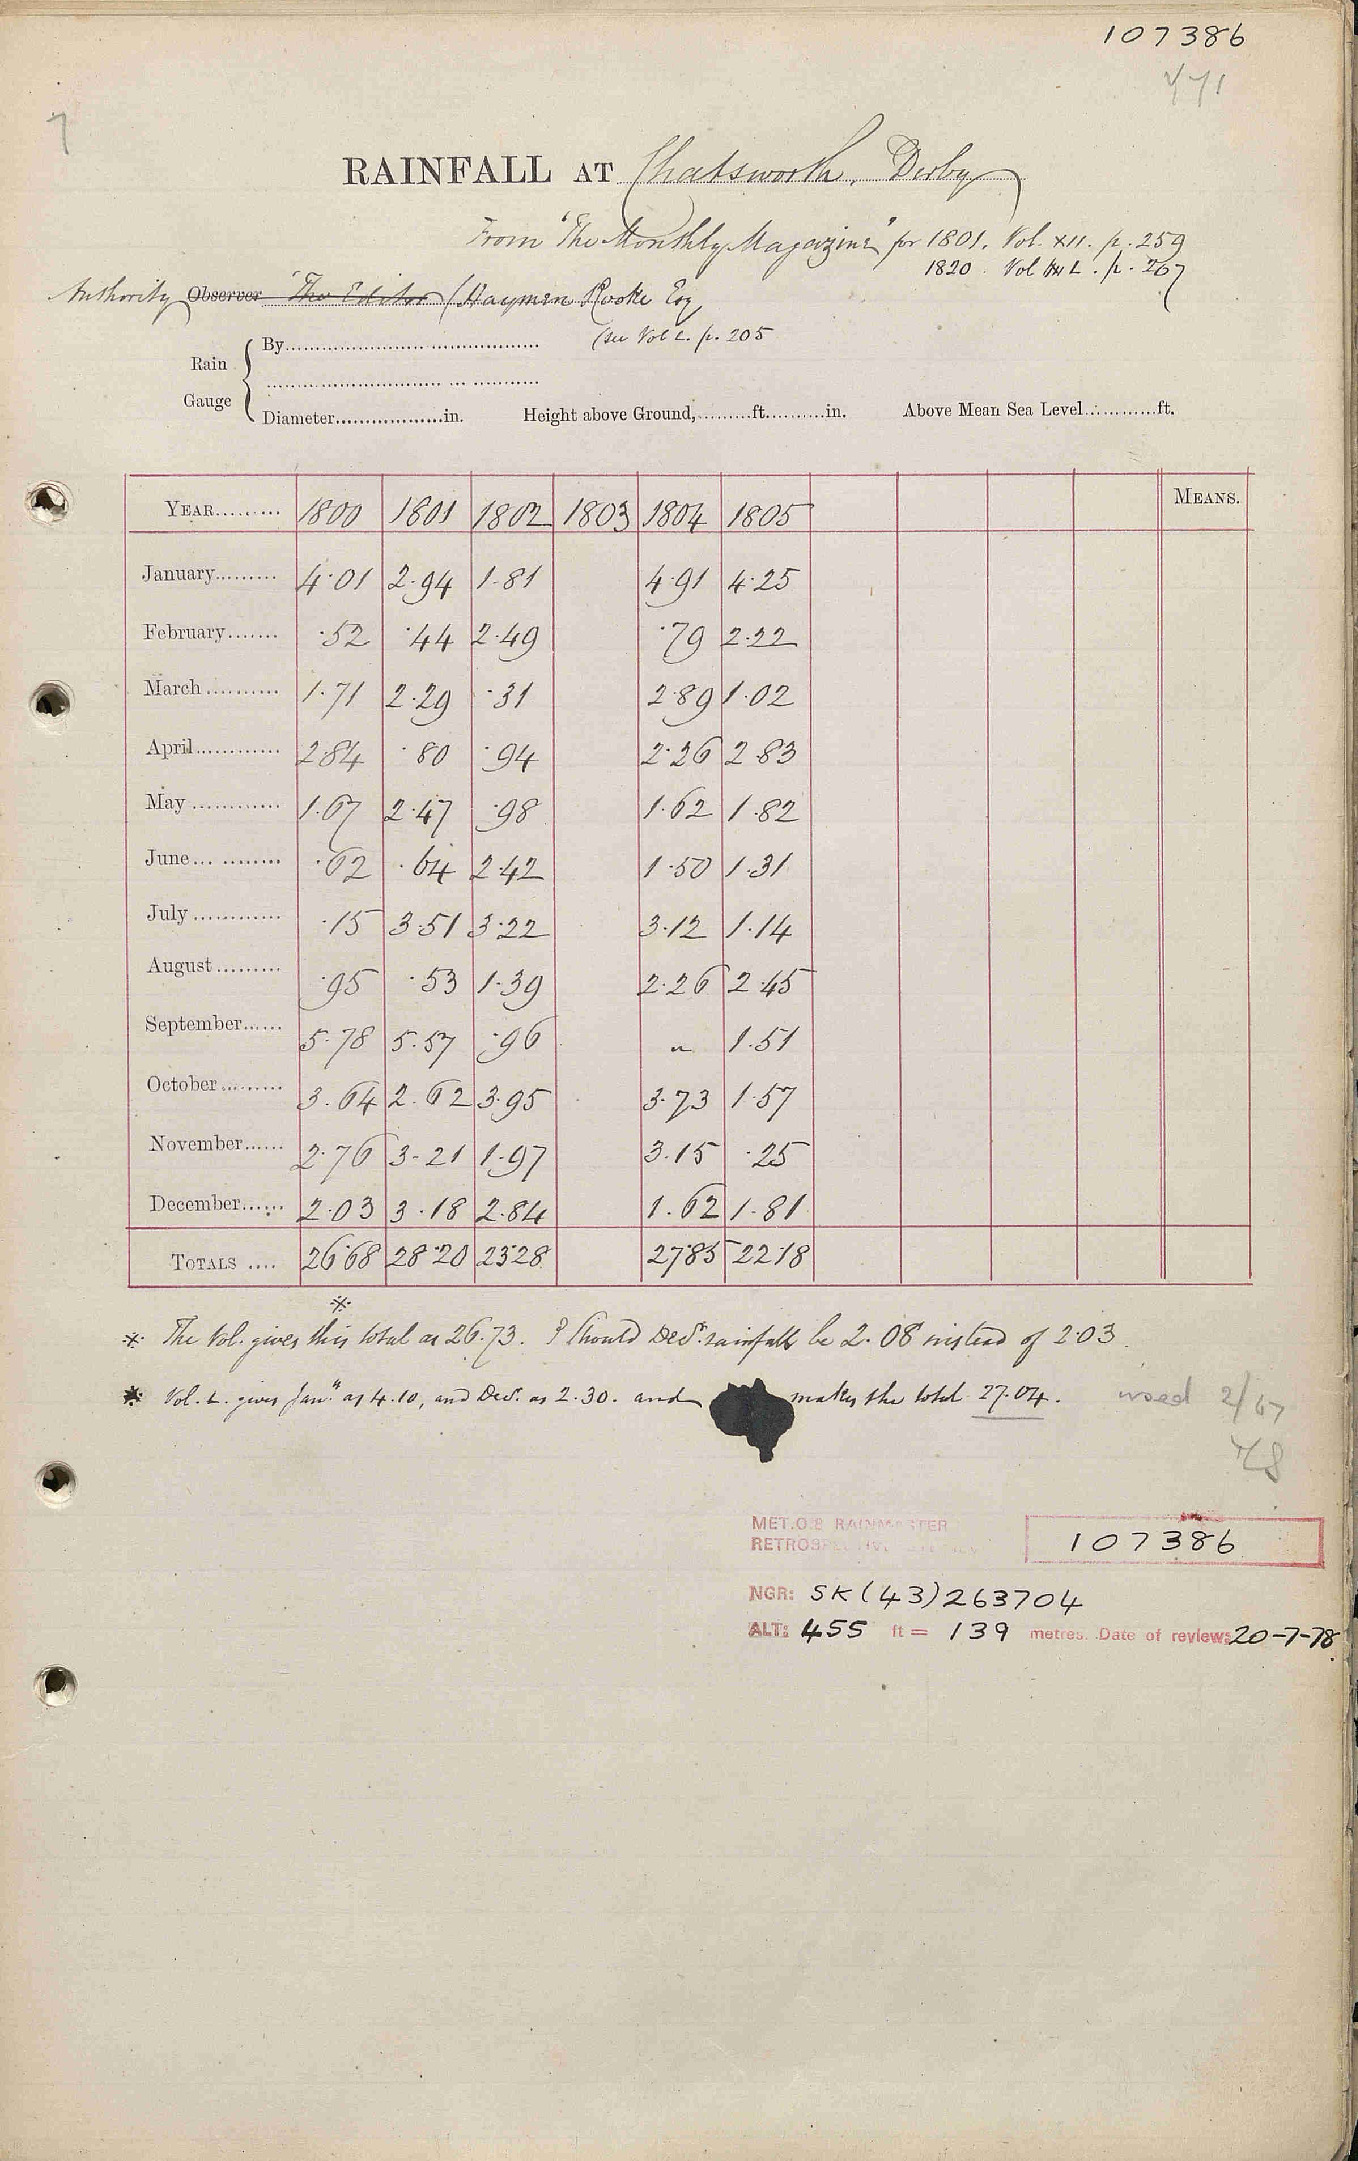 107386
7
RAINFALL AT Chatsworth, Derby
From "The Monthly Magazine" for 1801. Vol. XII. p. 259
1820. Vol L. p. 267
Authority Observer The Editor (Hayman Rooke Esq
(see Vol L. p. 205
Rain Gauge
By
Diameter in. Height above Ground, ft. in. Above Mean Sea Level ft.
YEAR 1800 1801 1802 1803 1804 1805 MEANS.
January 4.01 2.94 1.81 4.91 4.25
February .52 .44 2.49 .79 2.22
March 1.71 2.29 .31 2.89 1.02
April 2.84 .80 .94 2.26 2.83
May 1.67 2.47 .98 1.62 1.82
June .62 .64 2.42 1.50 1.31
July .15 3.51 3.22 3.12 1.14
August .95 .53 1.39 2.26 2.45
September 5.78 5.57 .96 " 1.51
October 3.64 2.62 3.95 3.73 1.57
November 2.76 3.21 1.97 3.15 .25
December 2.03 3.18 2.84 1.62 1.81
TOTALS 26.68 28.20 23.28 27.85 22.18
*
* The Vol. gives this total as 26.73. ? Should Decr. rainfall be 2.08 instead of 2.03
* Vol. L. gives Jany. as 4.10, and Decr. as 2.30. and makes the total 27.04.
used 2/47
MET.O.8 RAINMASTER
107386
NGR: SK(43)263704
ALT: 455 ft = 139 metres. Date of review: 20-7-78